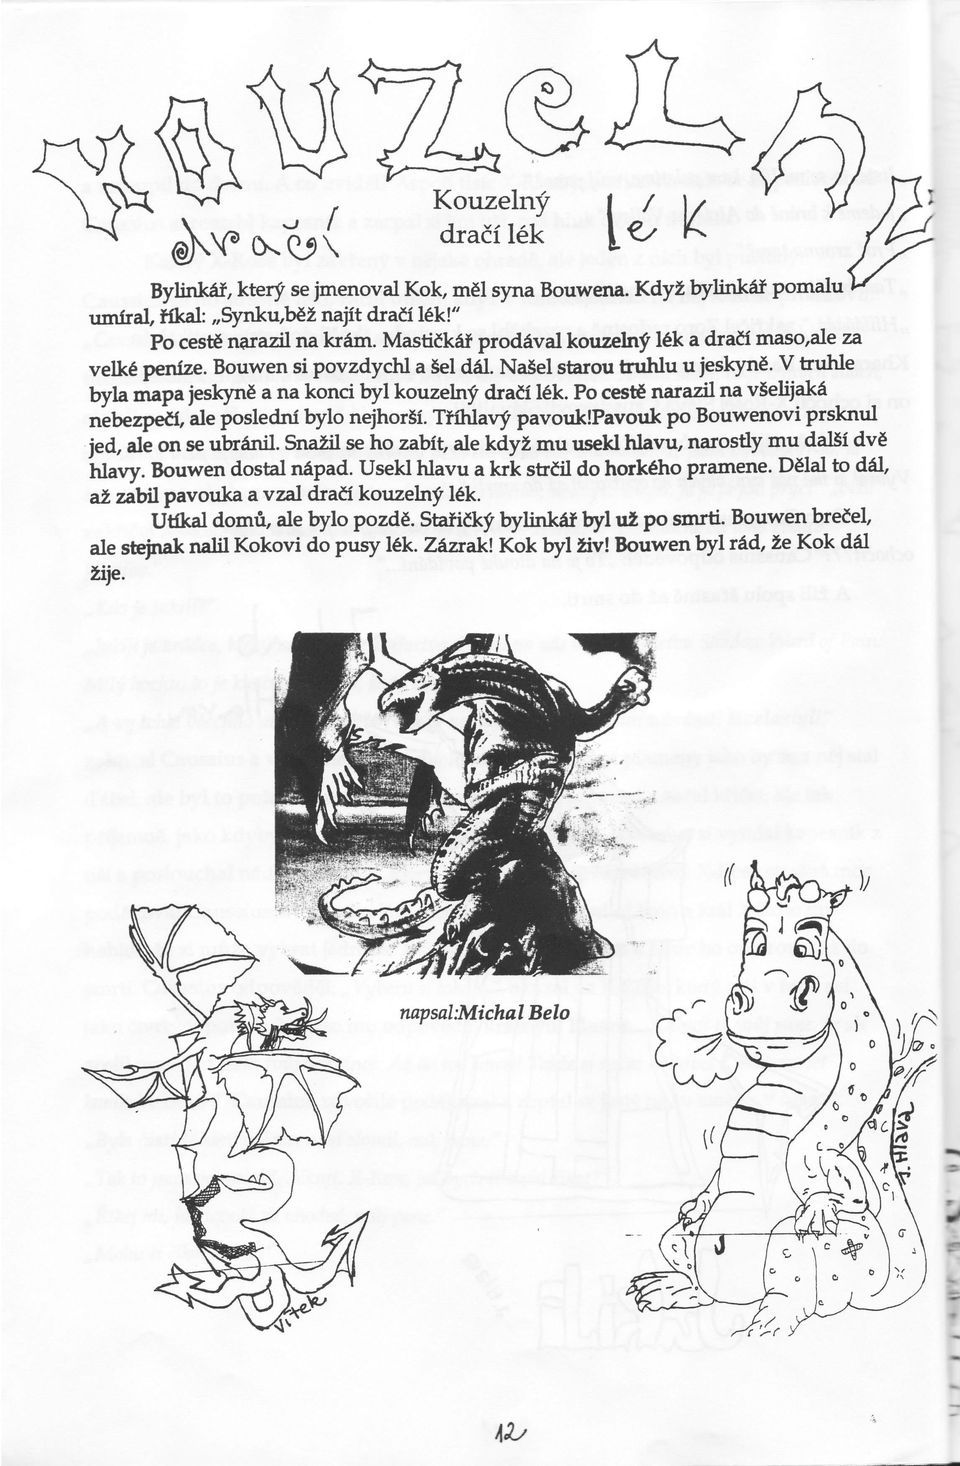 KOUZELNÝ
dračí lék
Kouzelný
dračí lék
Bylinkář, který se jmenoval Kok, měl syna Bouwena. Když bylinkář pomalu
umíral, říkal: „Synku,běž najít dračí lék!"
Po cestě narazil na krám. Mastičkář prodával kouzelný lék a dračí maso,ale za
velké peníze. Bouwen si povzdychl a šel dál. Našel starou truhlu u jeskyně. V truhle
byla mapa jeskyně a na konci byl kouzelný dračí lék. Po cestě narazil na všelijaká
nebezpečí, ale poslední bylo nejhorší. Tříhlavý pavouk!Pavouk po Bouwenovi prsknul
jed, ale on se ubránil. Snažil se ho zabít, ale když mu usekl hlavu, narostly mu další dvě
hlavy. Bouwen dostal nápad. Usekl hlavu a krk strčil do horkého pramene. Dělal to dál,
až zabil pavouka a vzal dračí kouzelný lék.
Utíkal domů, ale bylo pozdě. Stařičký bylinkář byl už po smrti. Bouwen brečel,
ale stejnak nalil Kokovi do pusy lék. Zázrak! Kok byl živ! Bouwen byl rád, že Kok dál
žije.
napsal:Michal Belo
Vítek
T. Hlava
12